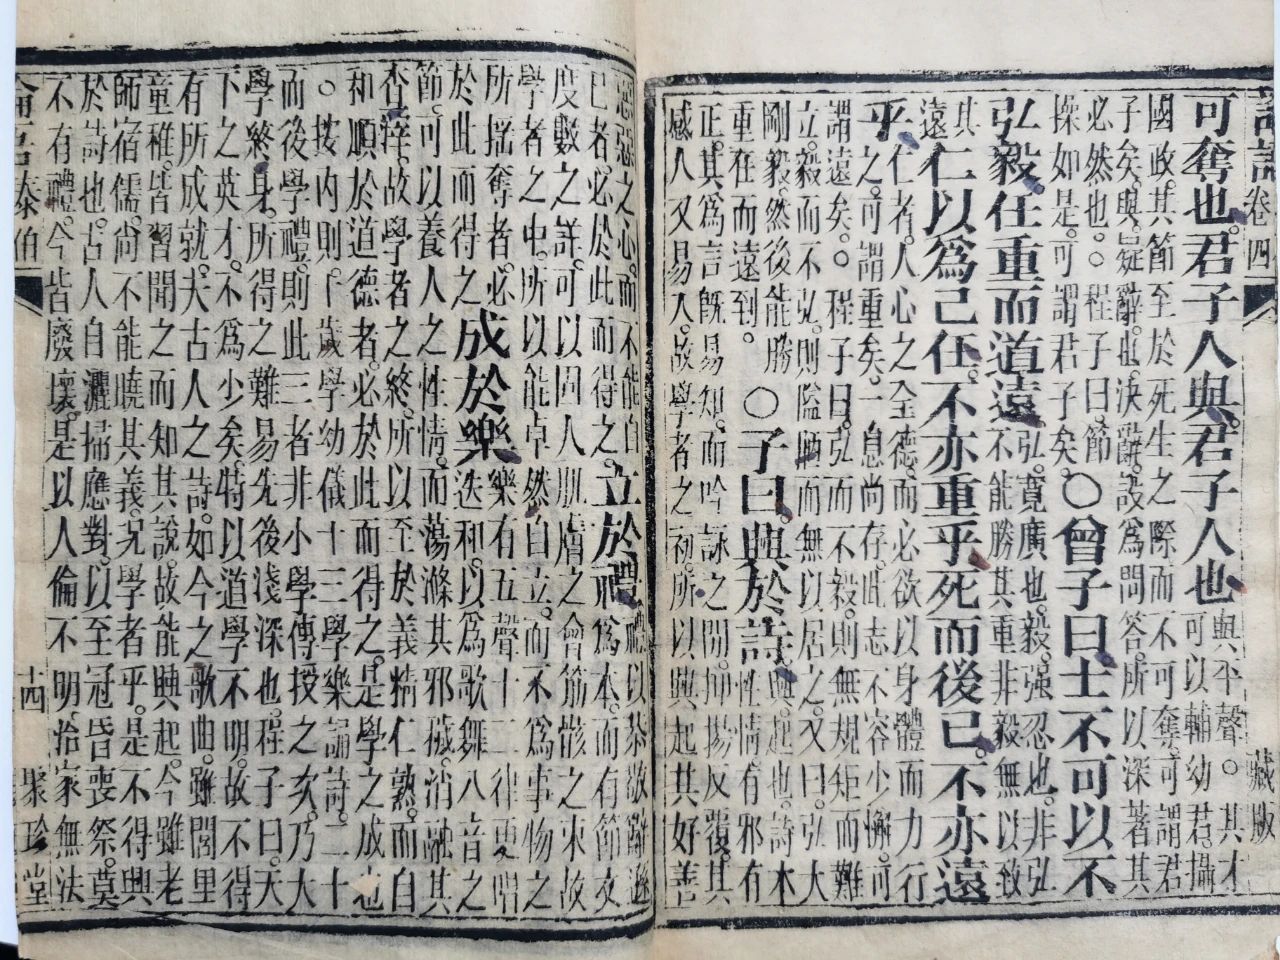 論語卷四 藏版
可奪也。君子人與。君子人也 與平聲。○其才
可以輔幼君。攝
國政。其節至於死生之際而不可奪。可謂君
子矣。與。疑辭。也。決辭。設爲問答。所以深著其
必然也。○程子曰。節
操如是。可謂君子矣。
○曾子曰。士不可以不
弘毅。任重而道遠。 弘。寬廣也。毅。强忍也。非弘
不能勝其重。非毅無以致
其
遠
仁以爲己任。不亦重乎。死而後已。不亦遠
乎。 仁者。人心之全德。而必欲以身體而力行
之。可謂重矣。一息尚存。此志不容少懈。可
謂遠矣。○程子曰。弘而不毅。則無規矩而難
立。毅而不弘。則隘陋而無以居之。又曰。弘大
剛毅。然後能勝
重在而遠到。
○子曰。興於詩。 興。起也。詩本
性情。有邪有
正。其爲言既易知。而吟詠之間。抑揚反覆。其
感人又易入。故學者之初。所以興起其好善
惡惡之心。而不能自
已者。必於此而得之。
立於禮。 禮以恭敬辭遜
爲本。而有節文
度數之詳。可以固人肌膚之會。筋骸之束。故
學者之中。所以能卓然自立。而不爲事物之
所搖奪者。必
於此而得之。
成於樂。 樂有五聲十二律。更唱
迭和。以爲歌舞八音之
節。可以養人之性情。而蕩滌其邪穢。消融其
查滓。故學者之終。所以至於義精仁熟。而自
和順於道德者。必於此而得之。是學之成也。
○按內則。十歲學幼儀。十三學樂誦詩。二十
而後學禮。則此三者。非小學傳授之次。乃大
學終身。所得之難易先後淺深也。程子曰。天
下之英才。不爲少矣。特以道學不明。故不得
有所成就。夫古人之詩。如今之歌曲。雖閭里
童稚。皆習聞之而知其說。故能興起。今雖老
師宿儒。尚不能曉其義。況學者乎。是不得興
於詩也。古人自灑掃應對。以至冠昏喪祭。莫
不有禮。今皆廢壞。是以人倫不明。治家無法
論語泰伯 十四 聚珍堂